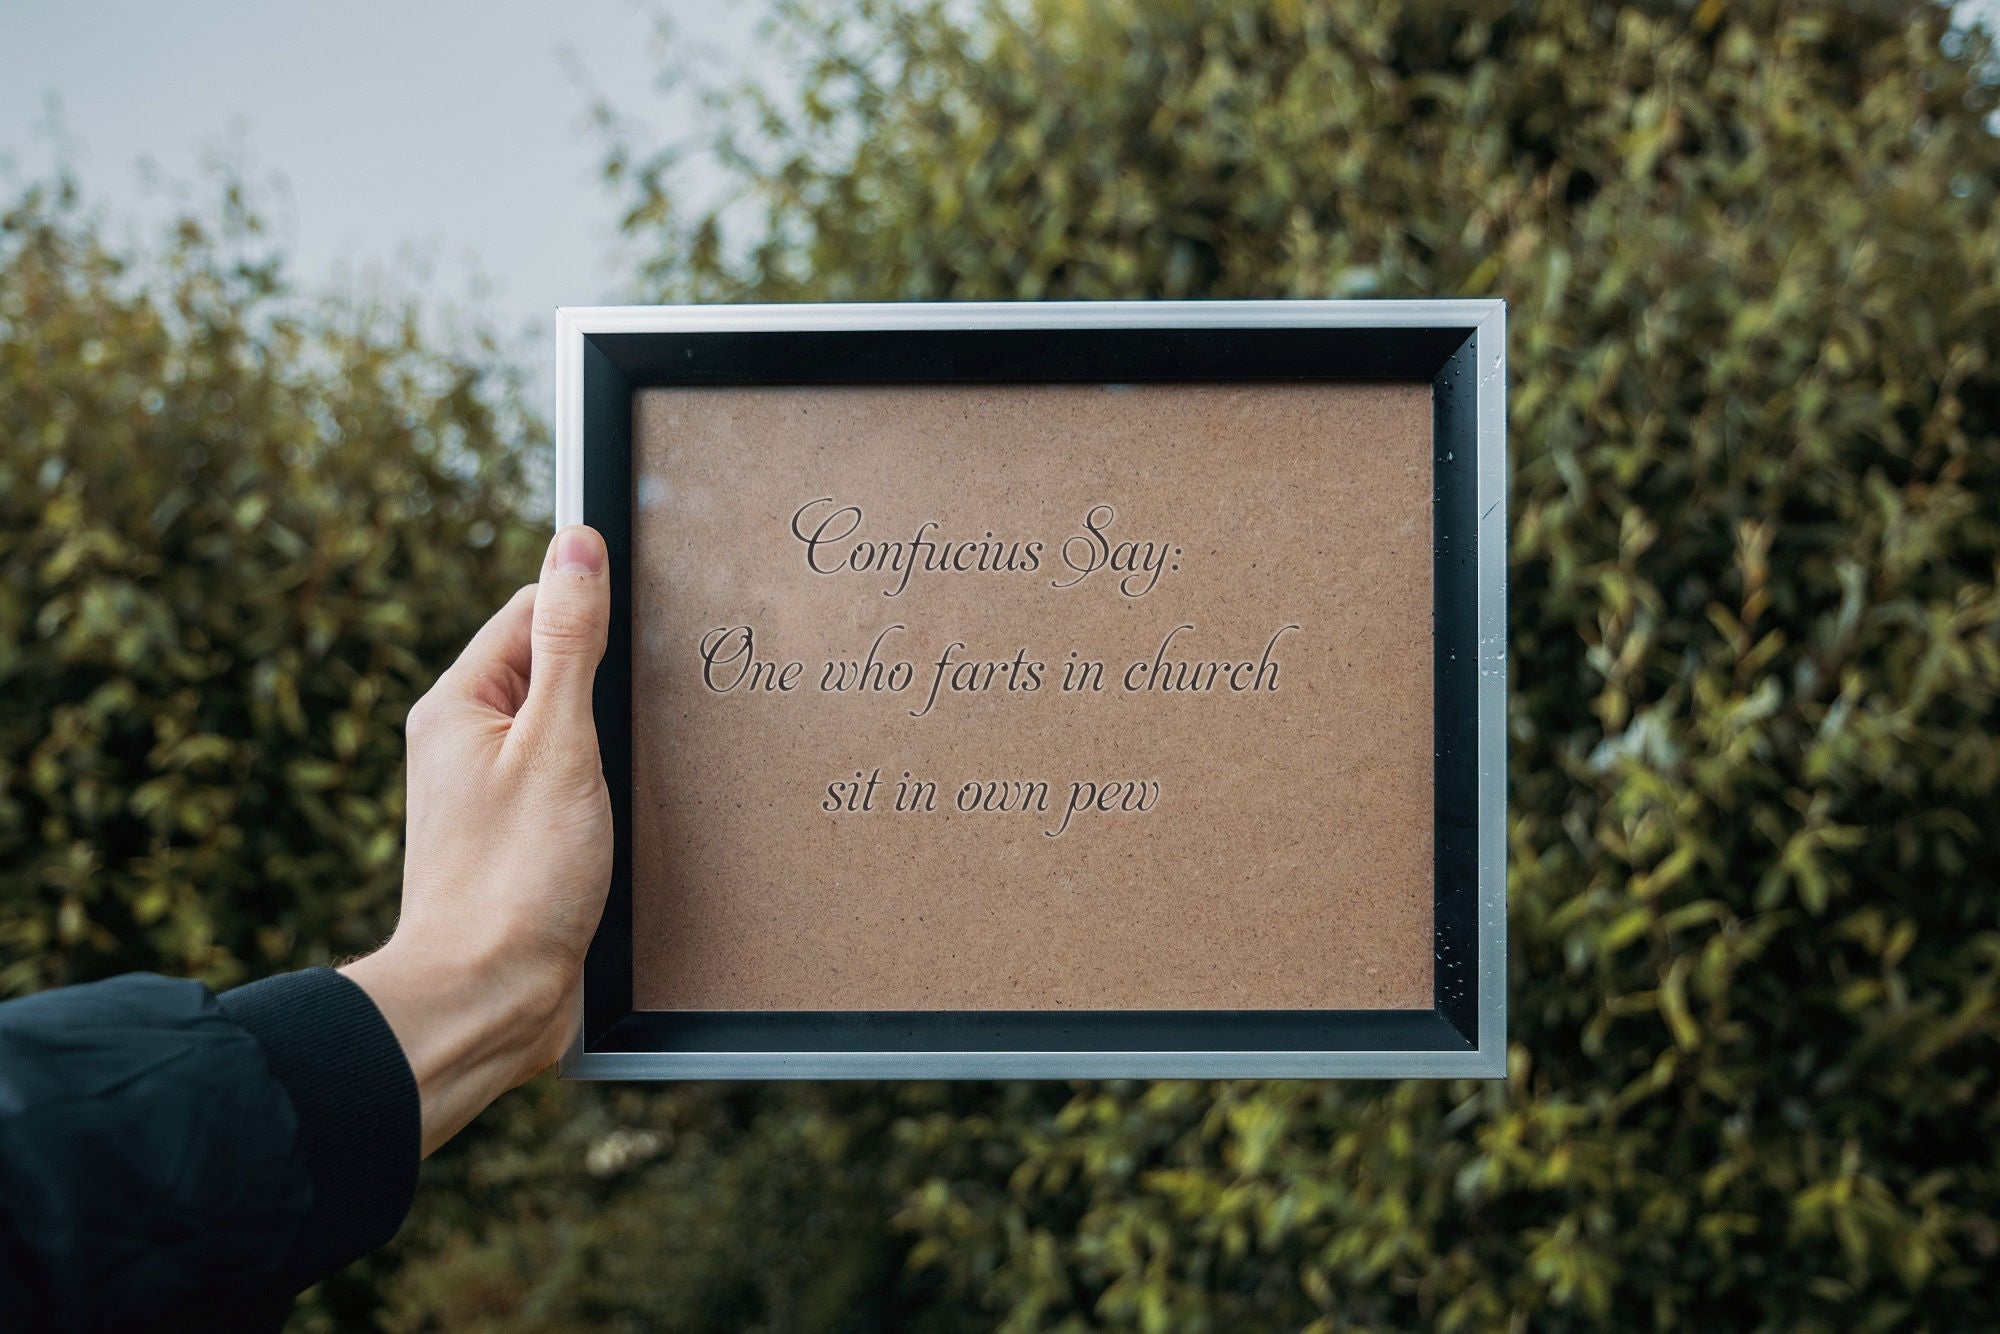 Confucius Say:
One who farts in church
sit in own pew